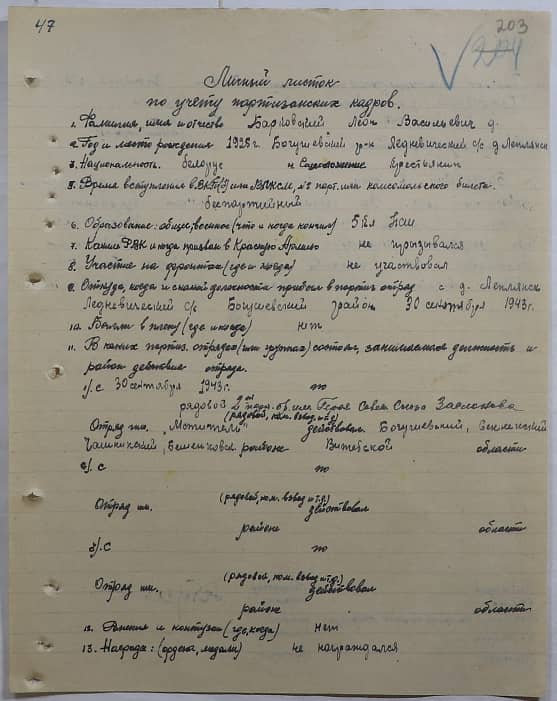 47
203
Личный листок
по учету партизанских кадров.
1. Фамилия, имя и отчество Барковский Леон Васильевич
2. Год и место рождения 1925г. Богушевский р-н Ледневичский с/с д. Леплянск
3. Национальность. белорус Соцположение крестьянин
5. Время вступления в ВКП(б) или ВЛКСМ, № парт. или комсомольского билета.
беспартийный
6. Образование: общее, военное (что и когда кончил) 5 кл НСШ
7. Каким РВК и когда призван в Красную Армию не призывался
8. Участие на фронтах (где и когда) не участвовал
9. Откуда, когда и с какой должности прибыл в партиз. отряд с д. Леплянск
Ледневичский с/с Богушевский район 30 сентября 1943г.
10. Был ли в плену (где и когда) нет
11. В каких партиз. отрядах (или группах) состоял, занимаемая должность и
район действия отряда.
1/. С 30 сентября 1943г. по
рядовой 2 парт. об. им. Героя Совет. Союза Заслонова
(рядовой, ком. взвод. и т.д.)
Отряд им. "Мститель" действовал Богушевский, Сенненский
Чашникский, Бешенковск. районе Витебской области
2/. С по
(рядовой, ком. взвод и т.д.)
Отряд им. действовал
районе области
3/. С по
(рядовой, ком. взвод и т.д.)
Отряд им. действовал
районе области
12. Ранения и контузии (где, когда) нет
13. Награда: (ордена, медали) не награждался